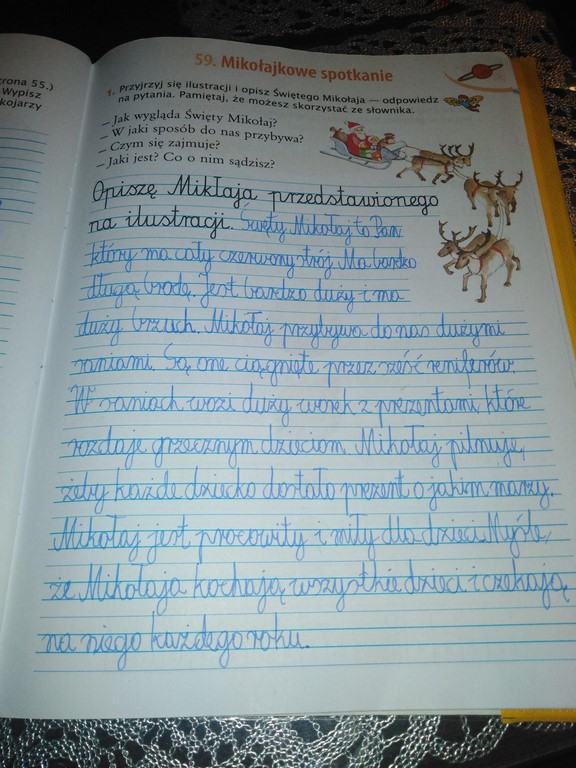 rona 55.)
Wypisz
kojarzy
59. Mikołajkowe spotkanie
1. Przyjrzyj się ilustracji i opisz Świętego Mikołaja — odpowiedz
na pytania. Pamiętaj, że możesz skorzystać ze słownika.
– Jak wygląda Święty Mikołaj?
– W jaki sposób do nas przybywa?
– Czym się zajmuje?
– Jaki jest? Co o nim sądzisz?
Opiszę Mikłaja przedstawionego
na ilustracji. Święty Mikołaj to Pan
który ma cały czerwony strój. Ma bardzo
długą brodę. Jest bardzo duży i ma
duży brzuch. Mikołaj przybywa do nas dużymi
saniami. Są one ciągnięte przez sześć reniferów.
W saniach wozi duży worek z prezentami, które
rozdaje grzecznym dzieciom. Mikołaj pilnuje,
żeby każde dziecko dostało prezent o jakim marzy.
Mikołaj jest pracowity i miły dla dzieci. Myślę,
że Mikołaja kochają wszystkie dzieci i czekają
na niego każdego roku.